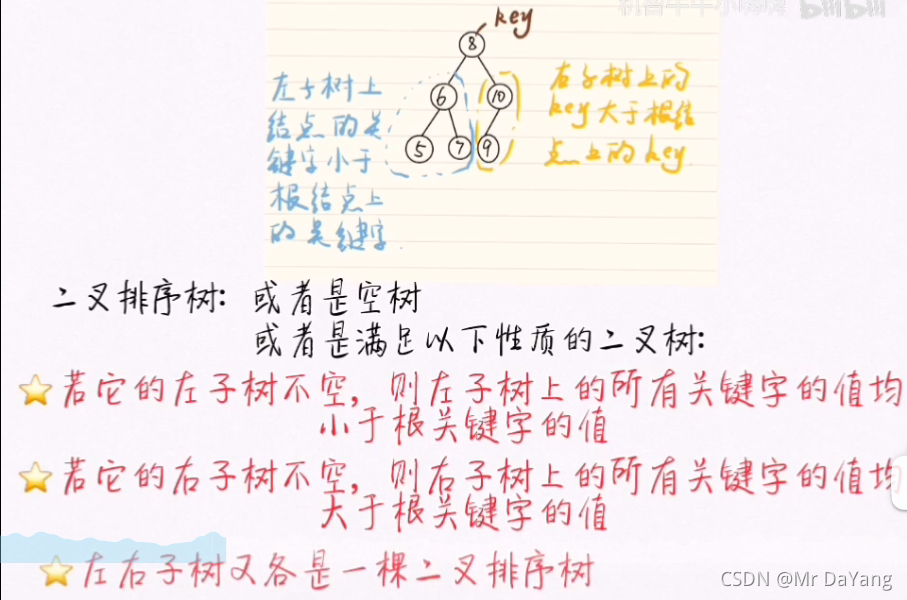 key
8
6
10
5
7
9
左子树上
结点的关
键字小于
根结点上
的关键字.
右子树上的
key大于根结
点上的key.
二叉排序树: 或者是空树
或者是满足以下性质的二叉树:
若它的左子树不空, 则左子树上的所有关键字的值均
小于根关键字的值
若它的右子树不空, 则右子树上的所有关键字的值均
大于根关键字的值
左右子树又各是一棵二叉排序树
CSDN @Mr DaYang